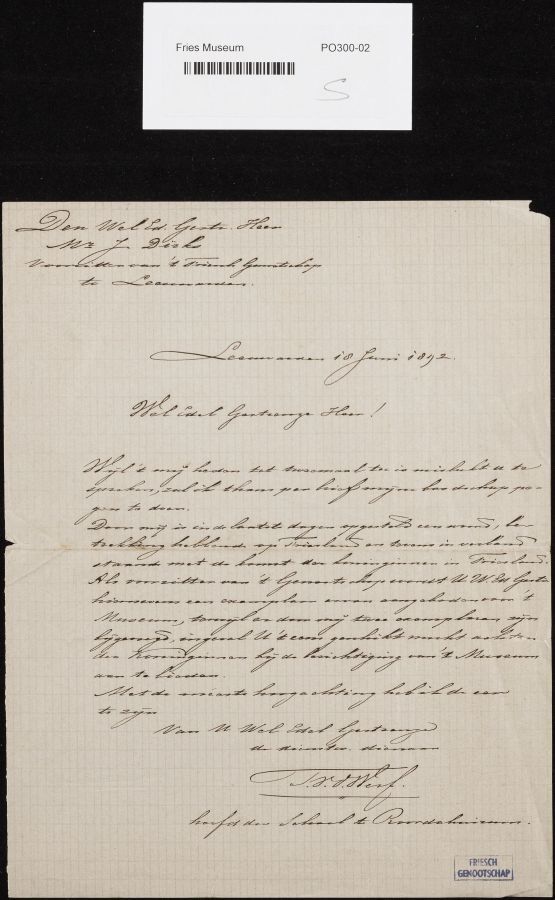 Fries Museum PO300-02
S
Den Wel Ed. Gestr. Heer
Mr J. Dirks
Voorzitter van 't Friesch Genootschap
te Leeuwarden.
Leeuwarden 18 Juni 1892.
Wel Edel Gestrenge Heer!
Wijl 't mij heden tot tweemaal toe is mislukt U te
spreken, zal ik thans per brief mijne boodschap po-
gen te doen.
Door mij is in de laatste dagen opgesteld een woord, be-
trekking hebbende op Friesland en tevens in verband
staande met de komst der koninginnen in Friesland.
Als voorzitter van 't Genootschap wordt U W Ed Gestr
hiernevens een exemplaar ervan aangeboden voor 't
Museum, terwijl er door mij twee exemplaren zijn
bijgevoegd, ingeval U 't een geschikt mocht achten
den Koninginnen bij de bezichtiging van 't Museum
aan te bieden.
Met de meeste hoogachting heb ik de eer
te zijn
Van U Wel Edel Gestrenge
de dienstw. dienaar
v. d. Werf.
hoofd der School te Roordahuizum.
FRIESCH
GENOOTSCHAP